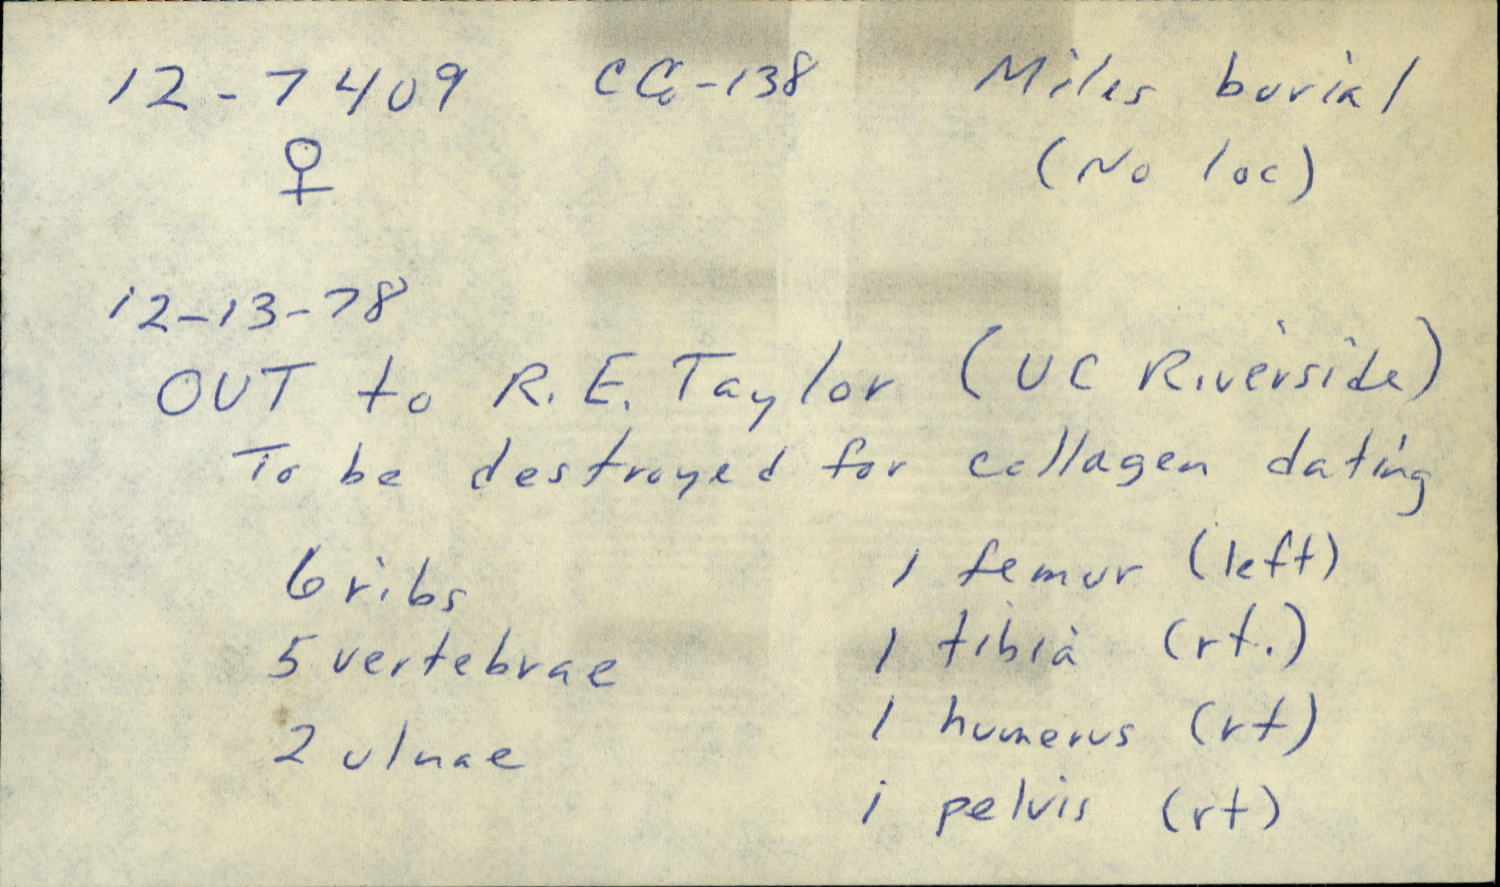 12-7409 CCo-138 Miles burial
♀ (No loc)
12-13-78
OUT to R.E. Taylor (UC Riverside)
To be destroyed for collagen dating
6 ribs 1 femur (left)
5 vertebrae 1 tibia (rt.)
2 ulnae 1 humerus (rt)
1 pelvis (rt)